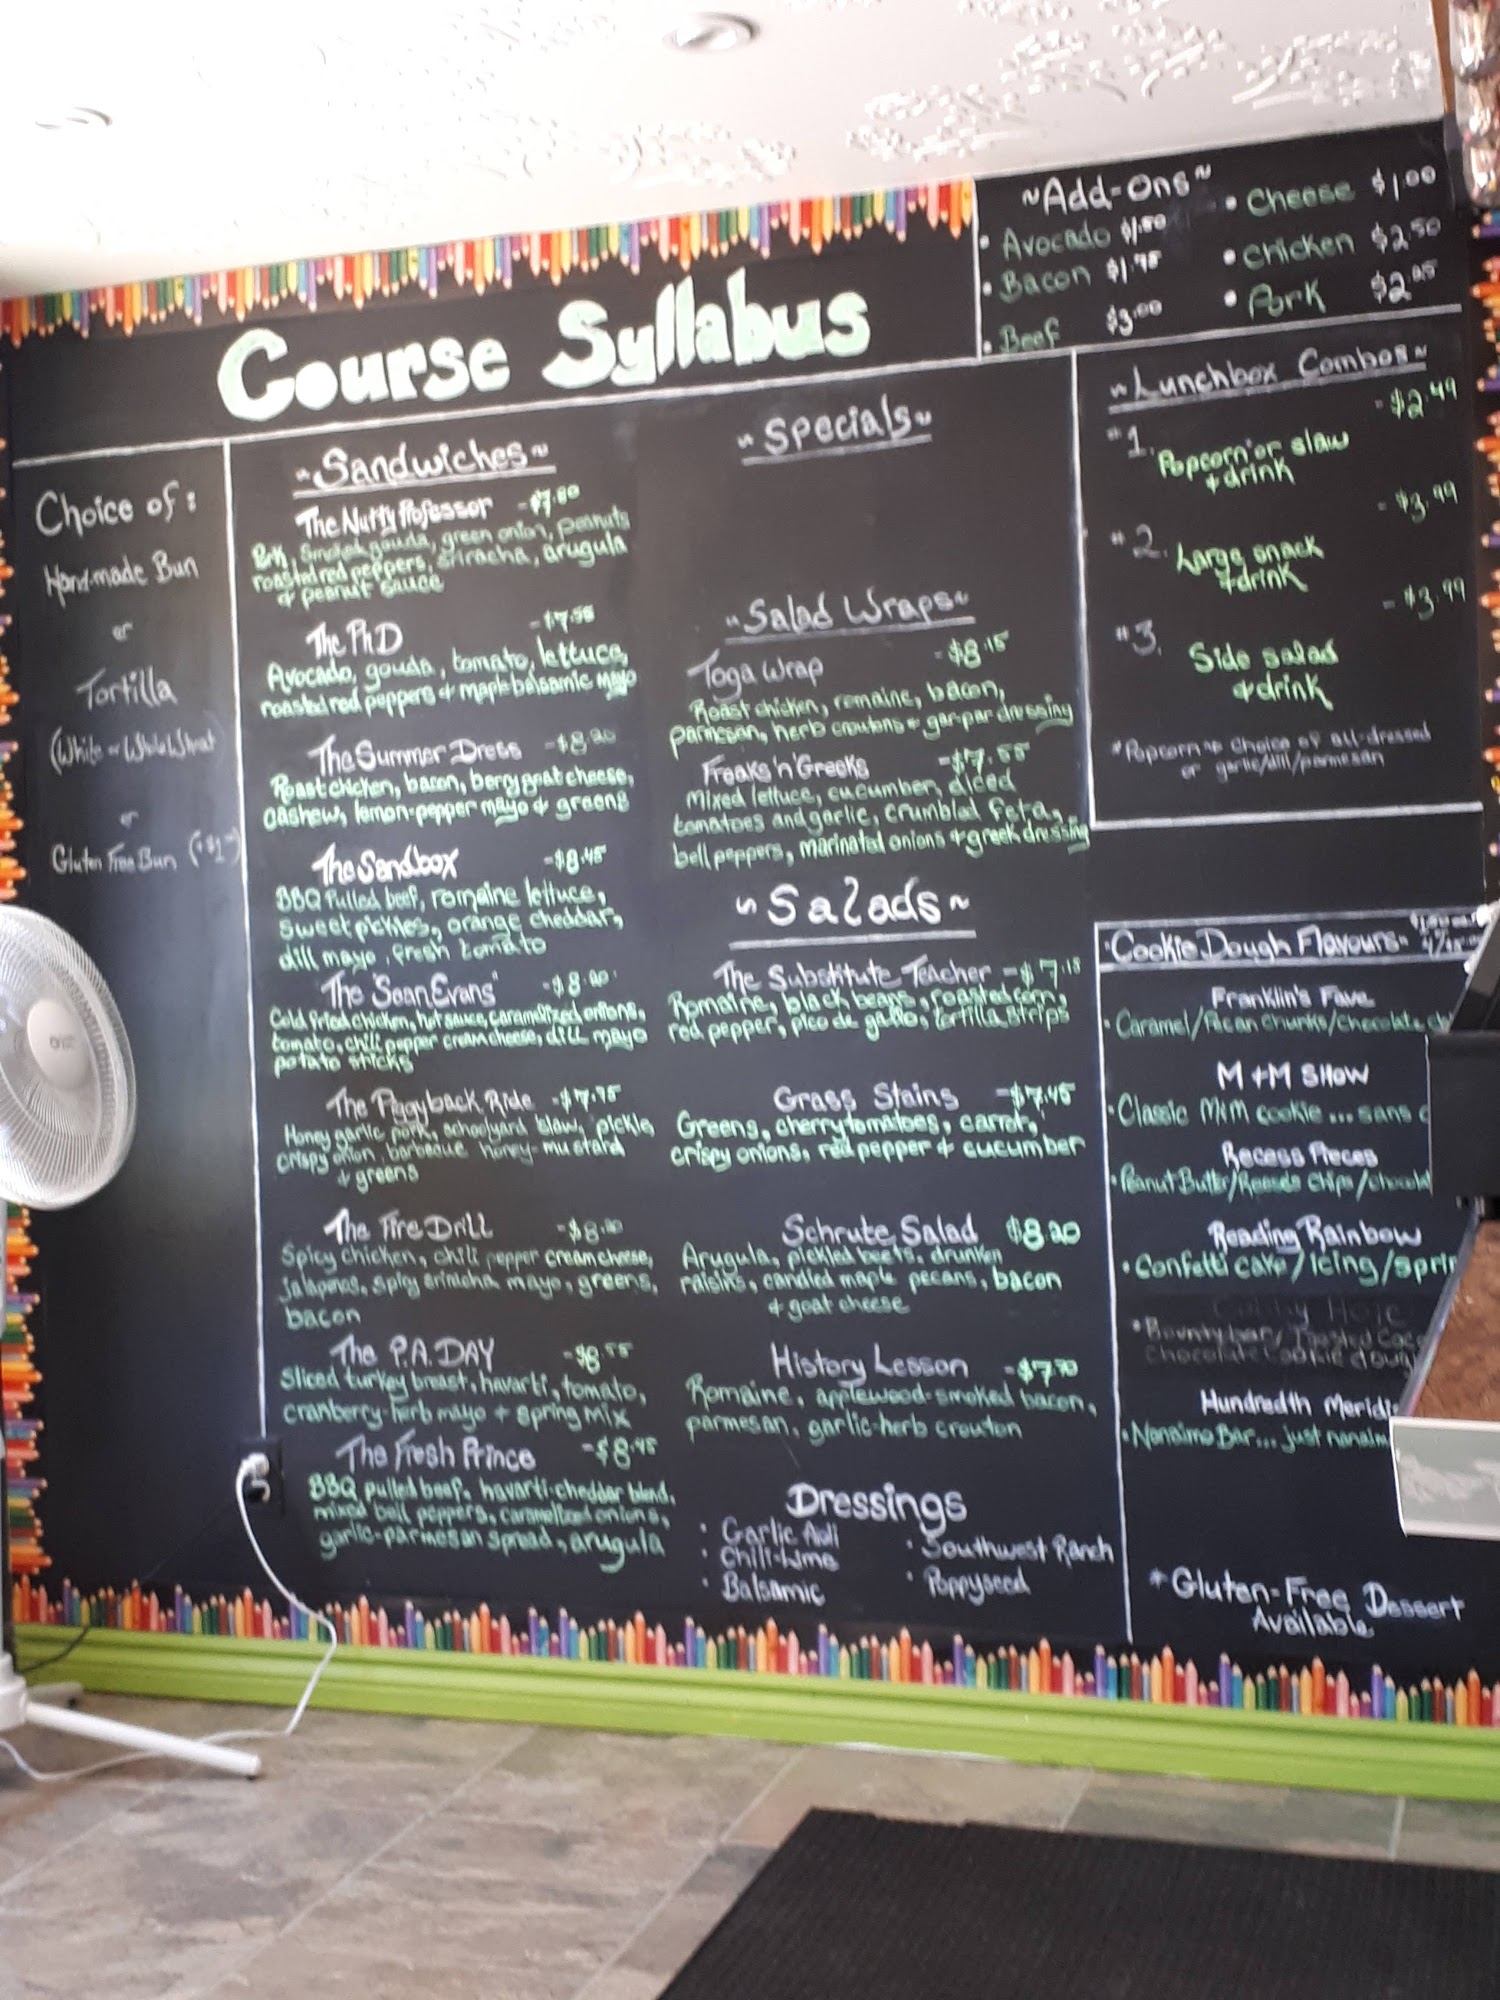 Course Syllabus
~Add-Ons~
• Avocado $1.50
• Bacon $1.75
• Beef $3.00
• Cheese $1.00
• Chicken $2.50
• Pork
Choice of:
Handmade Bun
or
Tortilla
(White or Whole Wheat
or
Gluten Free Bun
~Sandwiches~
The Nutty Professor -$7.80
Pork, smoked gouda, green onion, peanuts
roasted red peppers, sriracha, arugula
& peanut sauce
The PhD -$7.55
Avocado, gouda, tomato, lettuce,
roasted red peppers & maple balsamic mayo
The Summer Dress -$8.20
Roast chicken, bacon, berry goat cheese,
cashew, lemon-pepper mayo & greens
The Sandbox -$8.45
BBQ Pulled beef, romaine lettuce,
sweet pickles, orange cheddar,
dill mayo, fresh tomato
The "Sean Evans" -$8.20
Cold fried chicken, hot sauce, caramelized onions,
tomato, chili pepper cream cheese, dill mayo
potato sticks
The Piggyback Ride -$7.95
Honey garlic pork, schoolyard slaw, pickle,
crispy onion, barbecue honey-mustard
& greens
The Fire Drill -$8.20
Spicy chicken, chili pepper cream cheese,
jalapenos, spicy sriracha mayo, greens,
bacon
The P.A. DAY -$8.55
Sliced turkey breast, havarti, tomato,
cranberry-herb mayo + spring mix
The Fresh Prince -$8.45
BBQ pulled beef, havarti-cheddar blend,
mixed bell peppers, caramelized onions,
garlic-parmesan spread, arugula
~Specials~
~Salad Wraps~
Toga Wrap -$8.15
Roast chicken, romaine, bacon,
parmesan, herb croutons + gar-par dressing
Freaks 'n' Greeks -$7.55
Mixed lettuce, cucumber, diced
tomatoes and garlic, crumbled feta,
bell peppers, marinated onions & greek dressing
~Salads~
The Substitute Teacher -$7.15
Romaine, black beans, roasted corn,
red pepper, pico de gallo, tortilla strips
Grass Stains -$7.45
Greens, cherry tomatoes, carrot,
crispy onions, red pepper & cucumber
Schrute Salad $8.20
Arugula, pickled beets, drunken
raisins, candied maple pecans, bacon
& goat cheese
History Lesson -$7.70
Romaine, applewood-smoked bacon,
parmesan, garlic-herb crouton
Dressings
• Garlic Aioli
• Chili-Lime
• Balsamic
• Southwest Ranch
• Poppyseed
~Lunchbox Combos~
#1. -$2.49
Popcorn or slaw
+ drink
#2. -$3.99
Large snack
+ drink
#3. -$3.99
Side salad
+ drink
*Popcorn → choice of all-dressed
or garlic/dill/parmesan
•Cookie Dough Flavours•
Franklin's Fave
• Caramel/Pecan Chunks/Chocolate
M+M SHOW
• Classic M&M cookie... sans
Recess Pieces
• Peanut Butter/Reese's Chips/chocolat
Reading Rainbow
• Confetti cake/Icing/sprin
Cubby Hole
• Bounty bar/Toasted Coco
Chocolate Cookie dough
Hundredth Meridi
• Nanaimo Bar... just nanaim
*Gluten-Free Dessert
Available